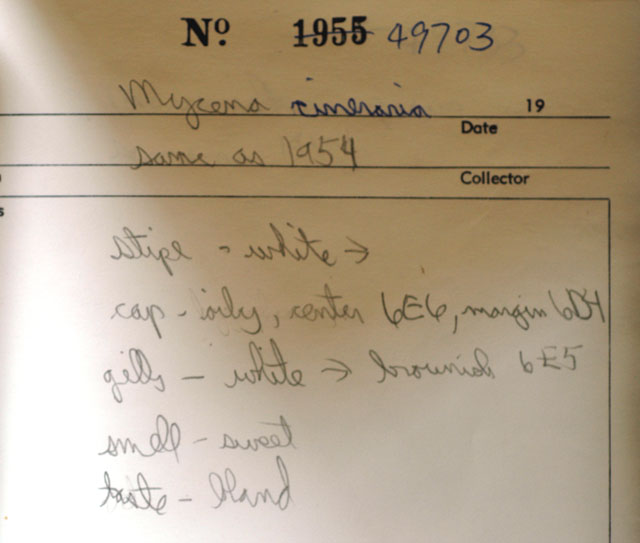 Nº 1955 49703
Mycena cineraria 19
Date
same as 1954
Collector
s
stipe - white →
cap - oily, center 6E6, margin 6D4
gills - white → brownish 6E5
smell - sweet
taste - bland